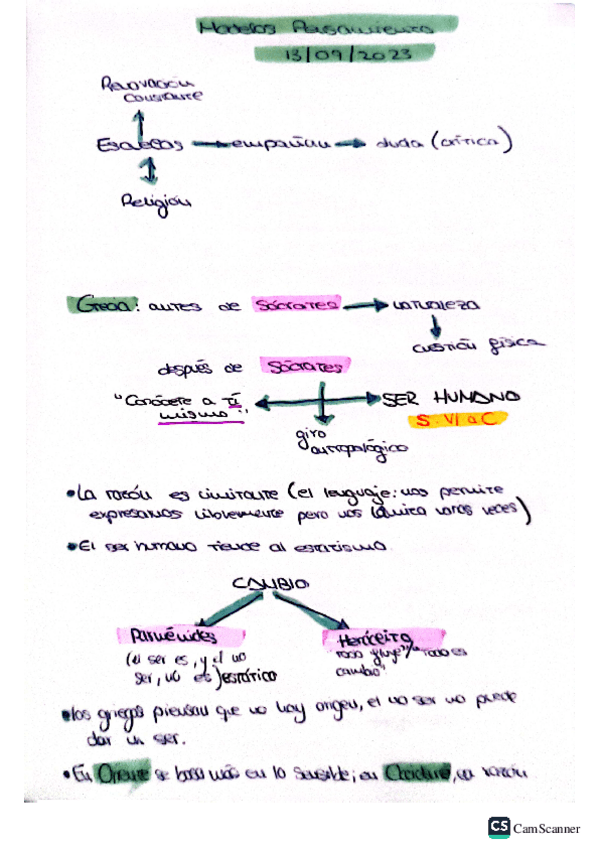 Modelos Pensamiento
13/09/2023
Renovación
constante
Escuelas → empañan → duda (crítica)
Religión
Grecia: antes de Sócrates → naturaleza
cuestión física
después de Sócrates
"Conócete a tí
mismo". SER HUMANO
S. VI a C
giro
antropológico
• La razón es limitante (el lenguaje: nos permite
expresarnos libremente pero nos limita varias veces)
• El ser humano tiende al estatismo.
CAMBIO
Parménides Heráclito
(el ser es, y el no
ser, no es) estático
"Todo fluye" / "Todo es
cambio"
• Los griegos piensan que no hay origen, el no ser no puede
dar un ser.
• En Oriente se basa más en lo sensible; en Occidente, en razón
CS CamScanner